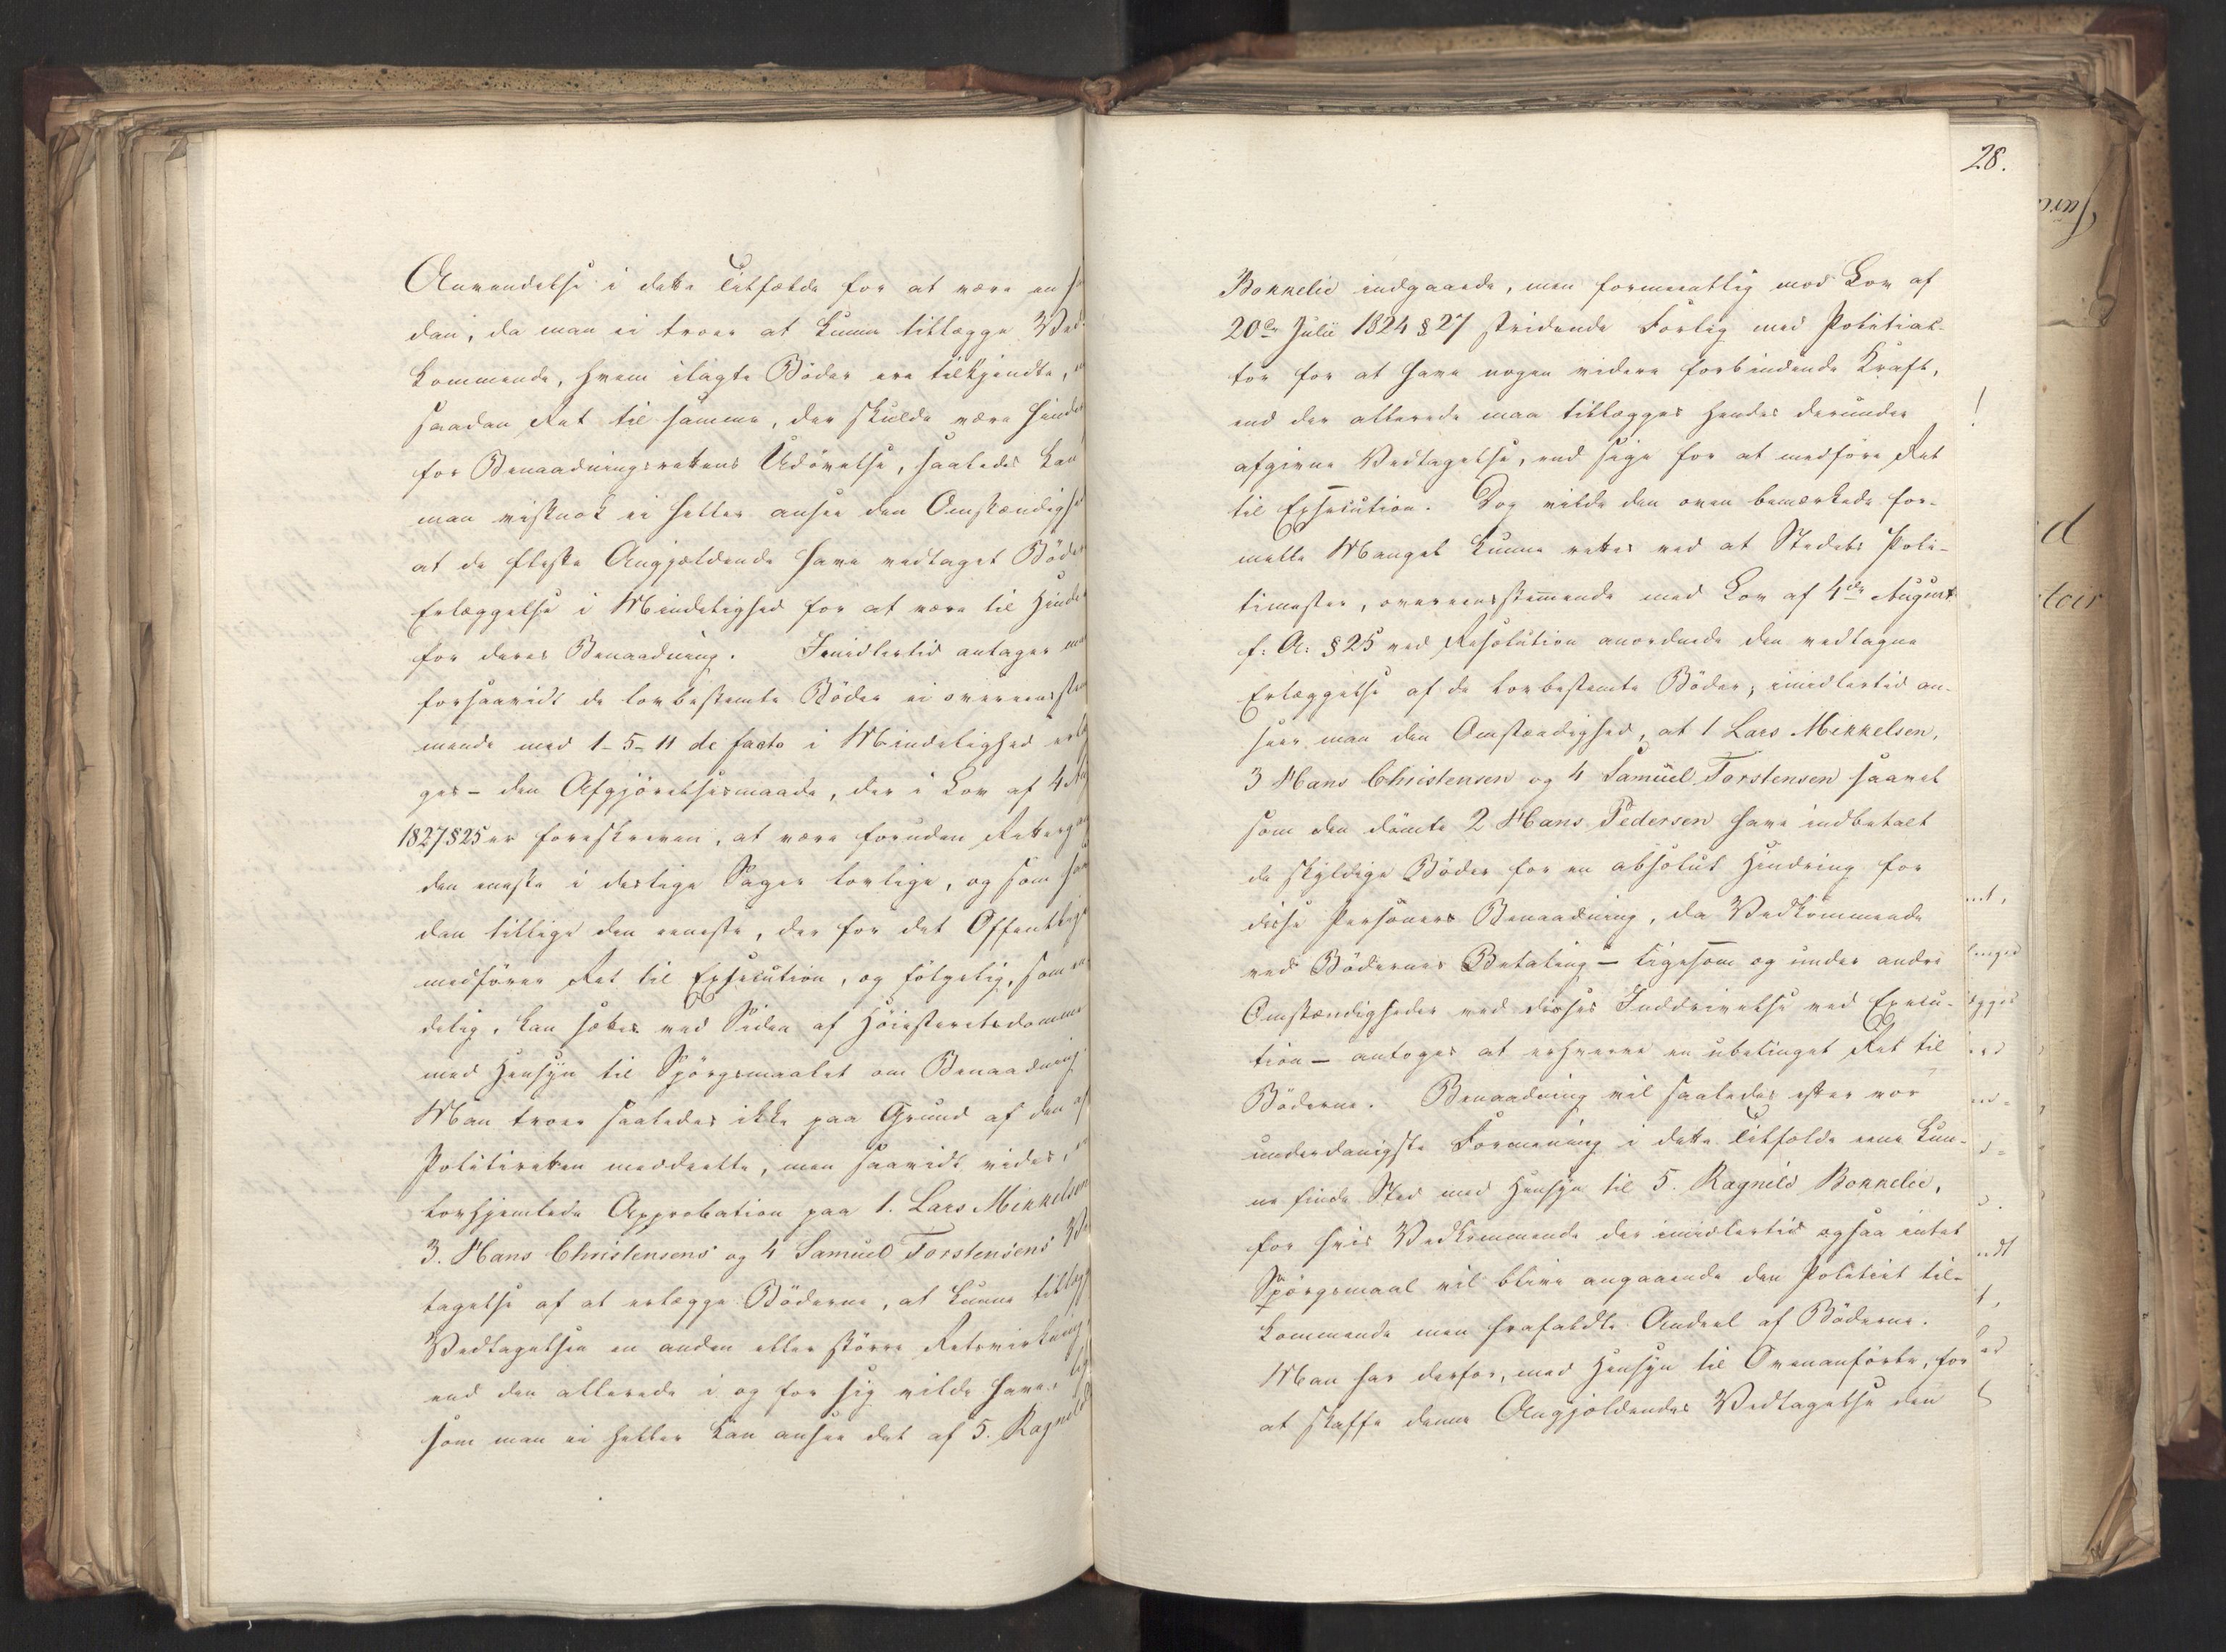 Anvendelse i dette Tilfælde for at være en saa
dan, da man ei troer at kunne tillægge Ved-
kommende, hvem ilagte Böder ere tilkjendte, en
saadan Ret til samme, der skulde være Hinder
for Benaadningsrettens Udövelse, saaledes kan
man vistnok ei heller ansee den Omstændighed
at de fleste Angjældende have vedtaget Böders
Erlæggelse i Mindelighed for at være til Hinder
for deres Benaadning. Imidlertid antages man
forsaavidt de lovbestemte Böder ei overeensstem
mende med 1-5-11 de facto i Mindelighed erlæg
ges - den Afgjörelsesmaade, der i Lov af 4 Aug
1827 § 25 er foreskreven, at være foruden Rettergang
den eneste i deslige Sager lovlige, og som saa
den tillige den eeneste, der for det Offentlige
medförer Ret til Exsecution, og fölgelig, som en
delig, kan sættes ved Siden af Höiesteretsdomme
med Hensyn til Spörgsmaalet om Benaadning.
Man troer saaledes ikke paa Grund af den af
Politiretten meddeelte, men saavidt vides, ei
lovhjemlede Approbation paa 1. Lars Mikkelsens
3. Hans Christensens og 4 Samuel Torstensens Ved
tagelse af at erlægge Böderne, at kunne tillægge
Vedtagelsen en anden eller större Retsvirkning,
end den allerede i og for sig vilde have, lige
som man ei heller kan ansee det af 5. Ragnild
28.
Bokkelie indgaaede, men formeentlig mod Lov af
20de Julii 1824 § 27 stridende Forlig med Politiac-
tor for at have nogen videre forbindende Kraft,
end der allerede maa tillægges hendes derunder
afgivne Vedtagelse, end sige for at medföre Ret
til Exsecution. Dog vilde den oven bemærkede for-
melle Mangel kunne rettes ved at Stedets Poli-
timester, overeensstemmende med Lov af 4de August
f: A: § 25 ved Resolution anordnede den vedtagne
Erlæggelse af de lovbestemte Böder; imidlertid an-
seer man den Omstændighed, at 1 Lars Mikkelsen,
3 Hans Christensen og 4 Samuel Torstensen saavel
som den dömte 2 Hans Pedersen have indbetalt
de skyldige Böder for en absolut Hindring for
disse Personers Benaadning, da Vedkommende
ved Bödernes Betaling - ligesom og under andre
Omstændigheder ved disses Inddrivelse ved Execu-
tion - antages at erhverve en ubetinget Ret til
Böderne. Benaadning vil saaledes efter vor
underdanigste Formening i dette Tilfælde eene kun-
ne finde Sted med Hensyn til 5. Ragnild Bokkelie,
for hvis Vedkommende der imidlertid ogsaa intet
Spörgsmaal vil blive angaaende den Politiet til-
kommende men frafaldte Andeel af Böderne.
Man har derfor, med Hensyn til Ovenanförte, for
at skaffe denne Angjældendes Vedtagelse den